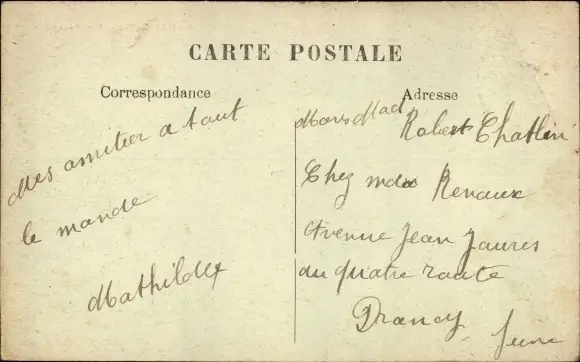 CARTE POSTALE
Correspondance
Adresse
Mes amitier a tout
le monde
Mathilde
Robert Chatlin
Chez mde Renaux
Avenue Jean Jaures
au quatre route
Drancy
Seine